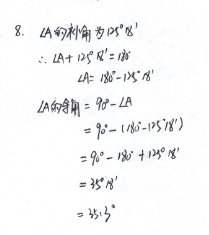 8. ∠A的补角为125°18′
∴ ∠A+125°18′=180°
∠A=180°-125°18′
∠A的余角=90°-∠A
=90°-(180°-125°18′)
=90°-180°+125°18′
=35°18′
=35.3°